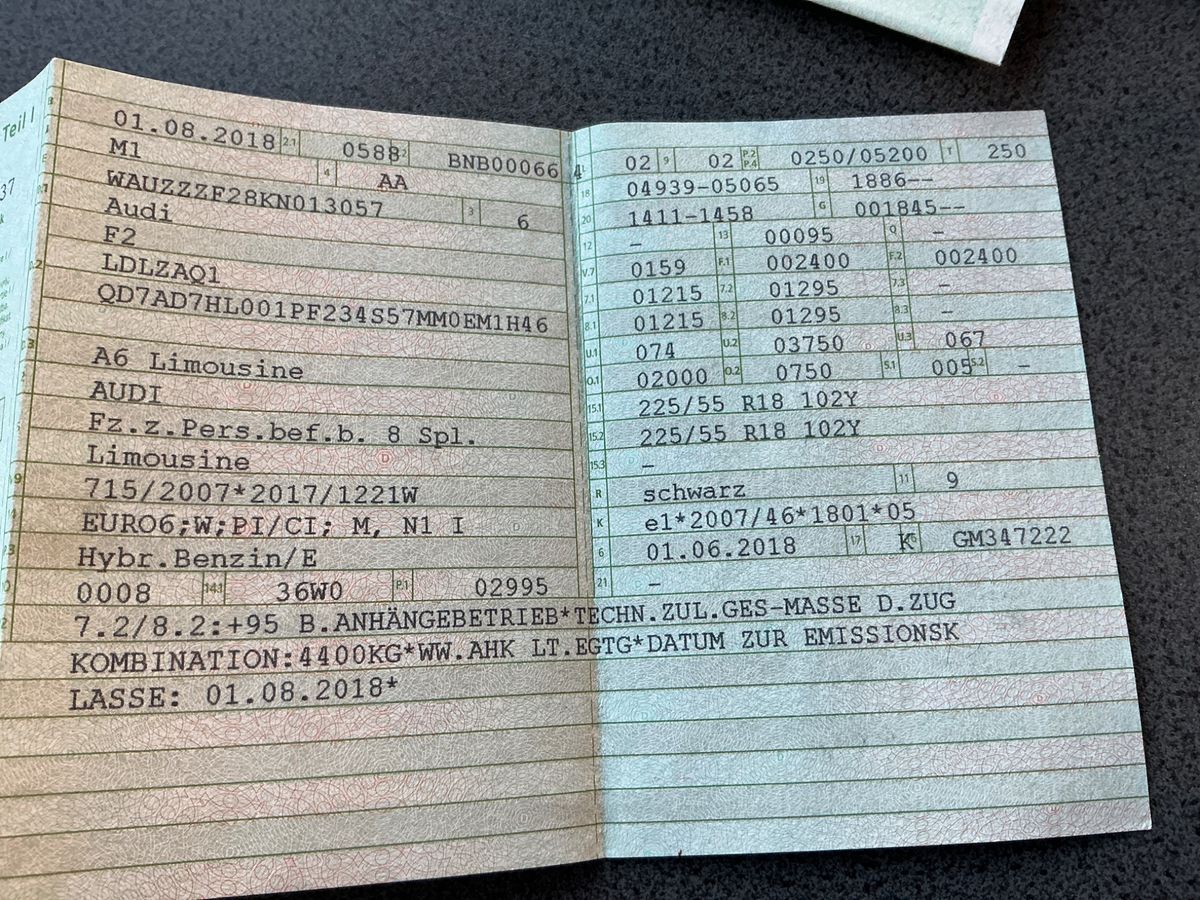 Teil I
37
01.08.2018 2.1 0588 2.2 BNB00066 4
M1 4 AA
WAUZZZF28KN013057 3 6
Audi
F2
LDLZAQ1
QD7AD7HL001PF234S57MM0EM1H46
A6 Limousine
AUDI
Fz.z.Pers.bef.b. 8 Spl.
Limousine
715/2007*2017/1221W
EURO6;W;PI/CI; M, N1 I
Hybr.Benzin/E
0008 14.1 36W0 P.1 02995
02 9 02 P.2 P.4 0250/05200 T 250
18 04939-05065 19 1886--
20 1411-1458 G 001845--
12 - 13 00095 Q -
V.7 0159 F.1 002400 F.2 002400
7.1 01215 7.2 01295 7.3 -
8.1 01215 8.2 01295 8.3 -
U.1 074 U.2 03750 U.3 067
O.1 02000 O.2 0750 S.1 005 S.2 -
15.1 225/55 R18 102Y
15.2 225/55 R18 102Y
15.3 -
R schwarz 11 9
K e1*2007/46*1801*05
6 01.06.2018 17 K 16 GM347222
21 -
7.2/8.2:+95 B.ANHÄNGEBETRIEB*TECHN.ZUL.GES-MASSE D.ZUG
KOMBINATION:4400KG*WW.AHK LT.EGTG*DATUM ZUR EMISSIONSK
LASSE: 01.08.2018*